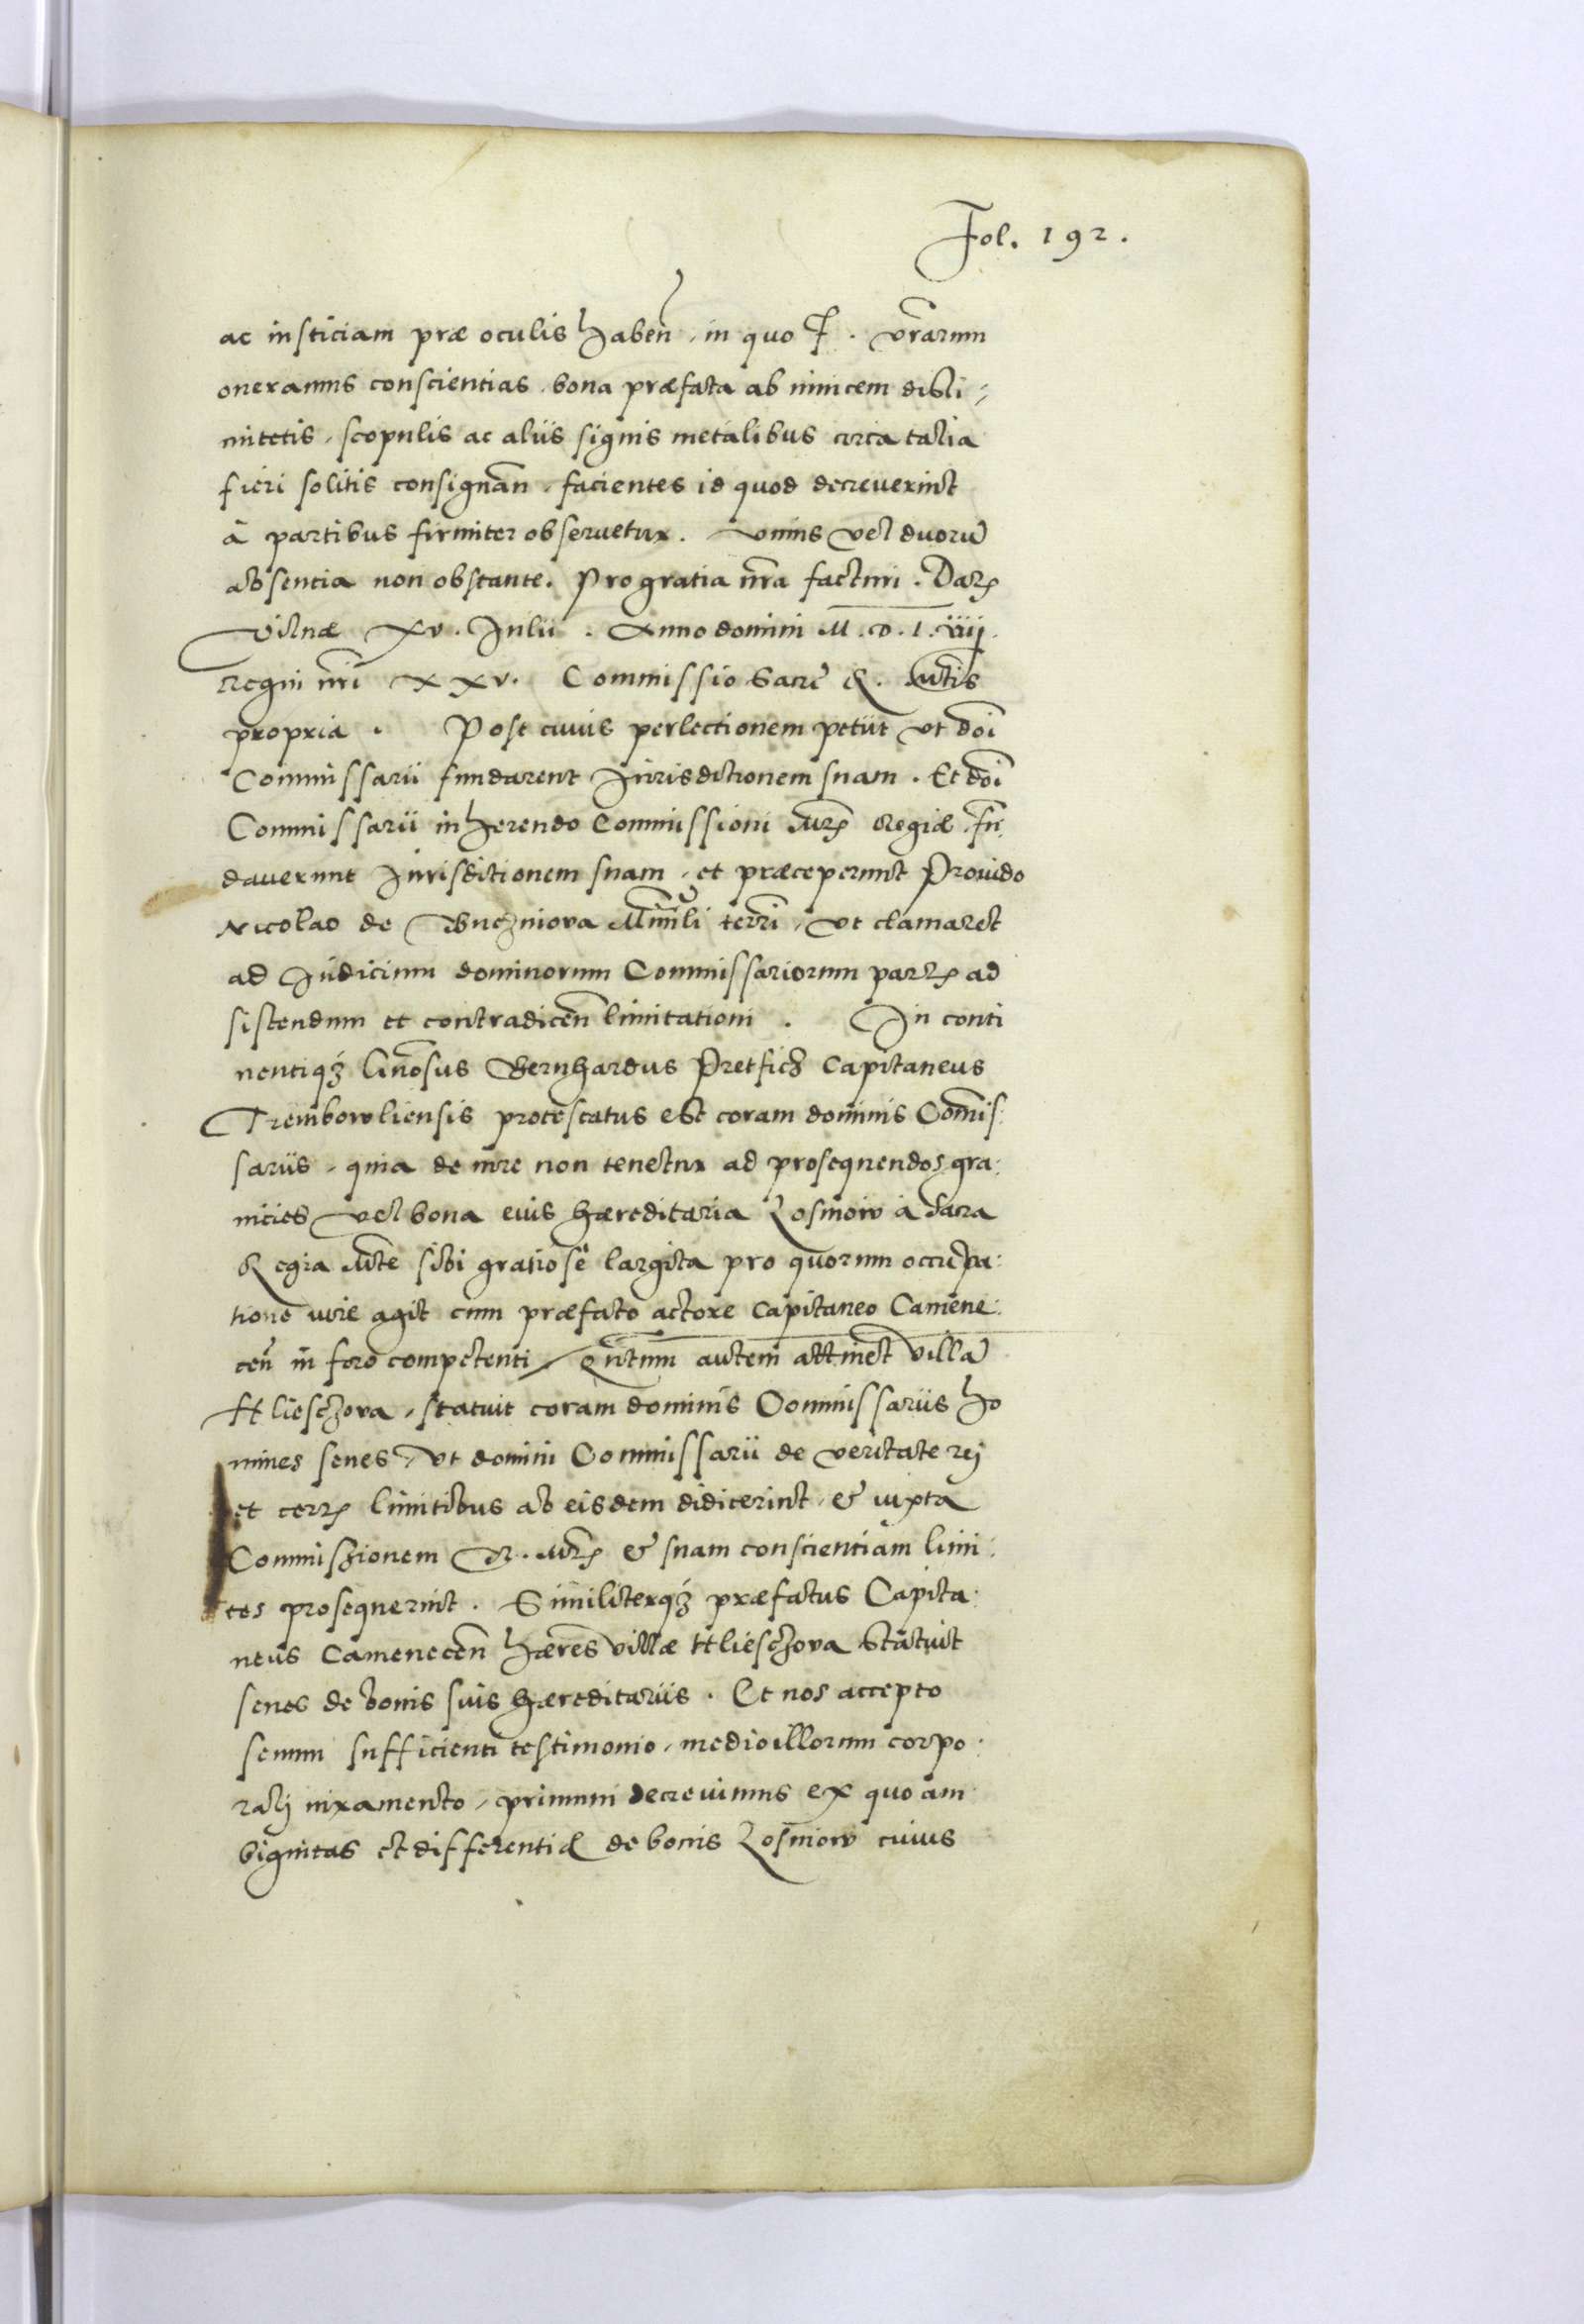 Fol. 192.
ac iusticiam præ oculis haben̄, in quo F. vr̄arum
oneramus conscientias. bona præfata ab inuicem disli=
mitetis, scopulis ac aliis signis metalibus circa talia
fieri solitis consignan̄, facientes id quod decreuerint
à partibus firmiter obseruetur. vnius vel duorū
absentia non obstante. Pro gratia nr̄a facturi. Datꝭ
Vilnæ xv. Julii. Anno domini M.D.L.iiij.
Regni nr̄i xxv. Commissio Sacrę R. Mtis
propria. Post cuius perlectionem petiit vt dn̄i
Commissarii fundarent Jurisdictionem suam. Et dn̄i
Commissarii inherendo Commissioni Mtꝭ Regiæ fun
dauerunt Jurisditionem suam, et præceperunt Prouido
Nicolao de Buczniova Mīnrl̄i terrī, vt clamaret
ad Judicium dominorum Commissariorum partꝭ ad
sistendum et contradicen̄ limitationi. In conti
nentiqȝ Gn̄osus Bernhardus Pretficz Capitaneus
Trembowliensis protestatus est coram dominis Com̄is:
sariis, quia de iure non tenetur ad prosequendos gra:
nicies vel bona eius hæreditaria Losniow à Sacra
Regia Mte sibi gratiosè largita pro quorum occupa:
tione iure agit cum præfato actore Capitaneo Camene:
cen̄ in foro competenti, Qn̄tum autem attinet villā
Hlieszczova, statuit coram dominis Commissariis ho
mines senes, vt domini Commissarii de veritate rej
et certꝭ limitibus ab eisdem didicerint, & iuxta
Commiszionem R. Mtꝭ & suam conscientiam limi:
tes prosequerint. Similiterqȝ præfatus Capita:
neus Camenecen̄ hæres villæ Hlieszczova statuit
senes de bonis suis hæreditariis. Et nos accepto
senum sufficienti testimonio, medio illorum corpo:
ralj iuramento, primum decreuimus ex quo am
biguitas et differentia de bonis Losniow cuius